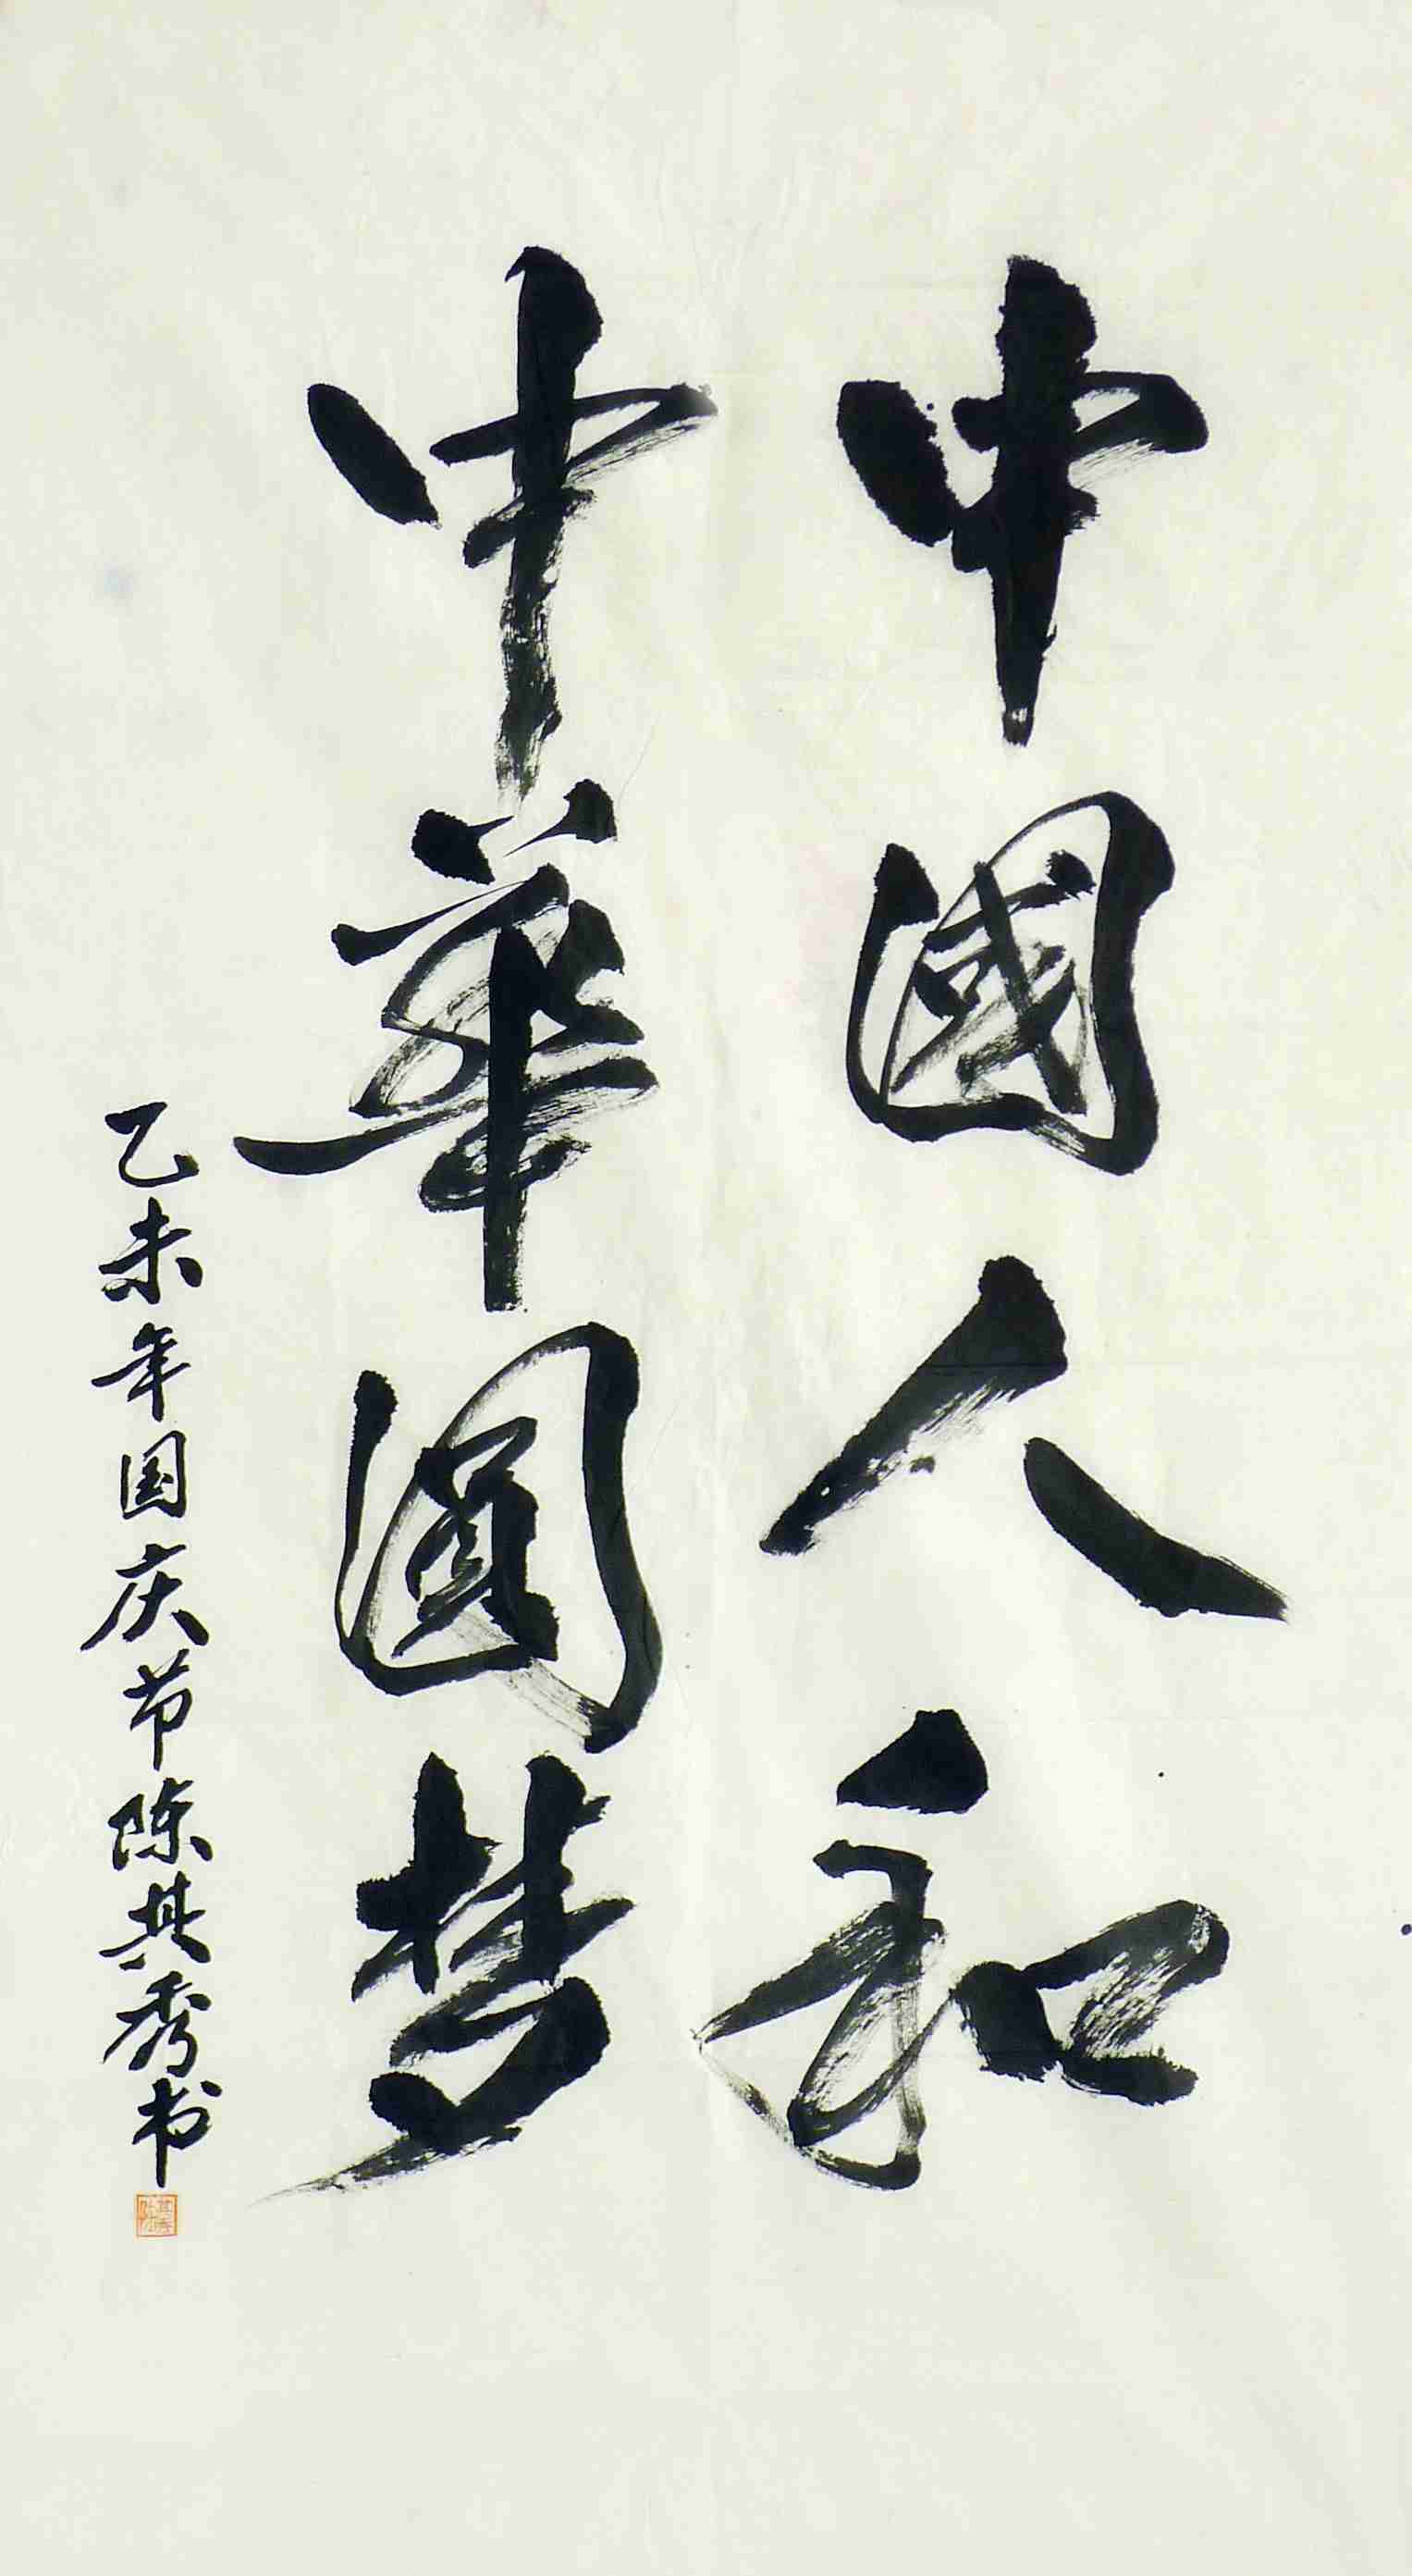 中國人和
中華圓梦
乙未年国庆节陈其秀书